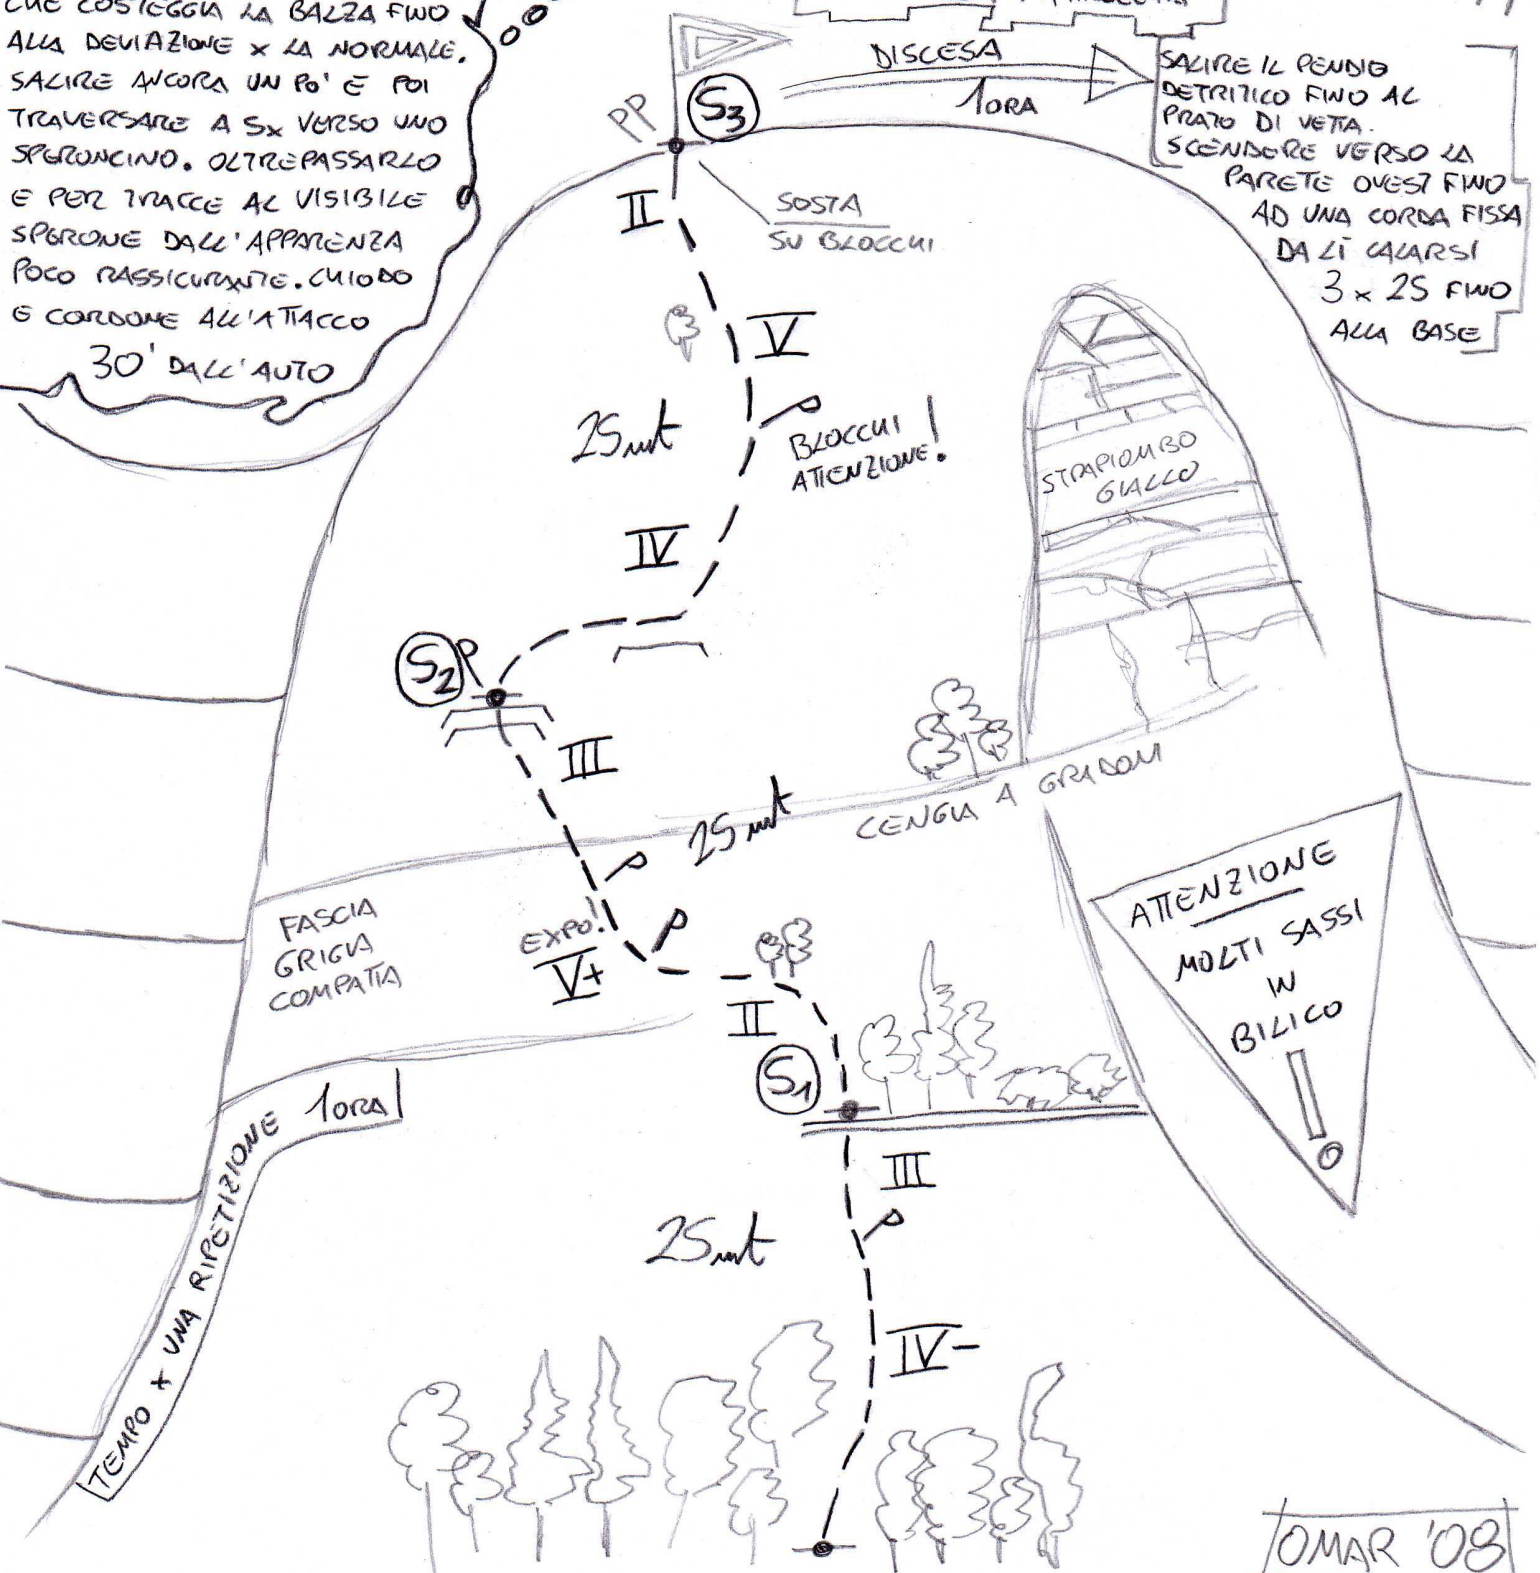 CHE COSTEGGIA LA BALZA FINO
ALLA DEVIAZIONE x LA NORMALE.
SALIRE ANCORA UN PO' E POI
TRAVERSARE A Sx VERSO UNO
SPERONCINO. OLTREPASSARLO
E PER TRACCE AL VISIBILE
SPERONE DALL'APPARENZA
POCO RASSICURANTE. CHIODO
E CORDONE ALL'ATTACCO
30' DALL'AUTO
DISCESA
1 ORA
SALIRE IL PENDIO
DETRITICO FINO AL
PRATO DI VETTA.
SCENDERE VERSO LA
PARETE OVEST FINO
AD UNA CORDA FISSA
DA LÌ CALARSI
3 x 25 FINO
ALLA BASE
PP
S3
II
SOSTA
SU BLOCCHI
V
25 mt
BLOCCHI
ATTENZIONE!
STRAPIOMBO
GIALLO
IV
S2
P
III
25 mt
CENGIA A GRADONI
FASCIA
GRIGIA
COMPATTA
EXPO!
V+
II
S1
ATTENZIONE
MOLTI SASSI
IN
BILICO
!
TEMPO x UNA RIPETIZIONE 1 ORA
III
25 mt
IV-
OMAR '08